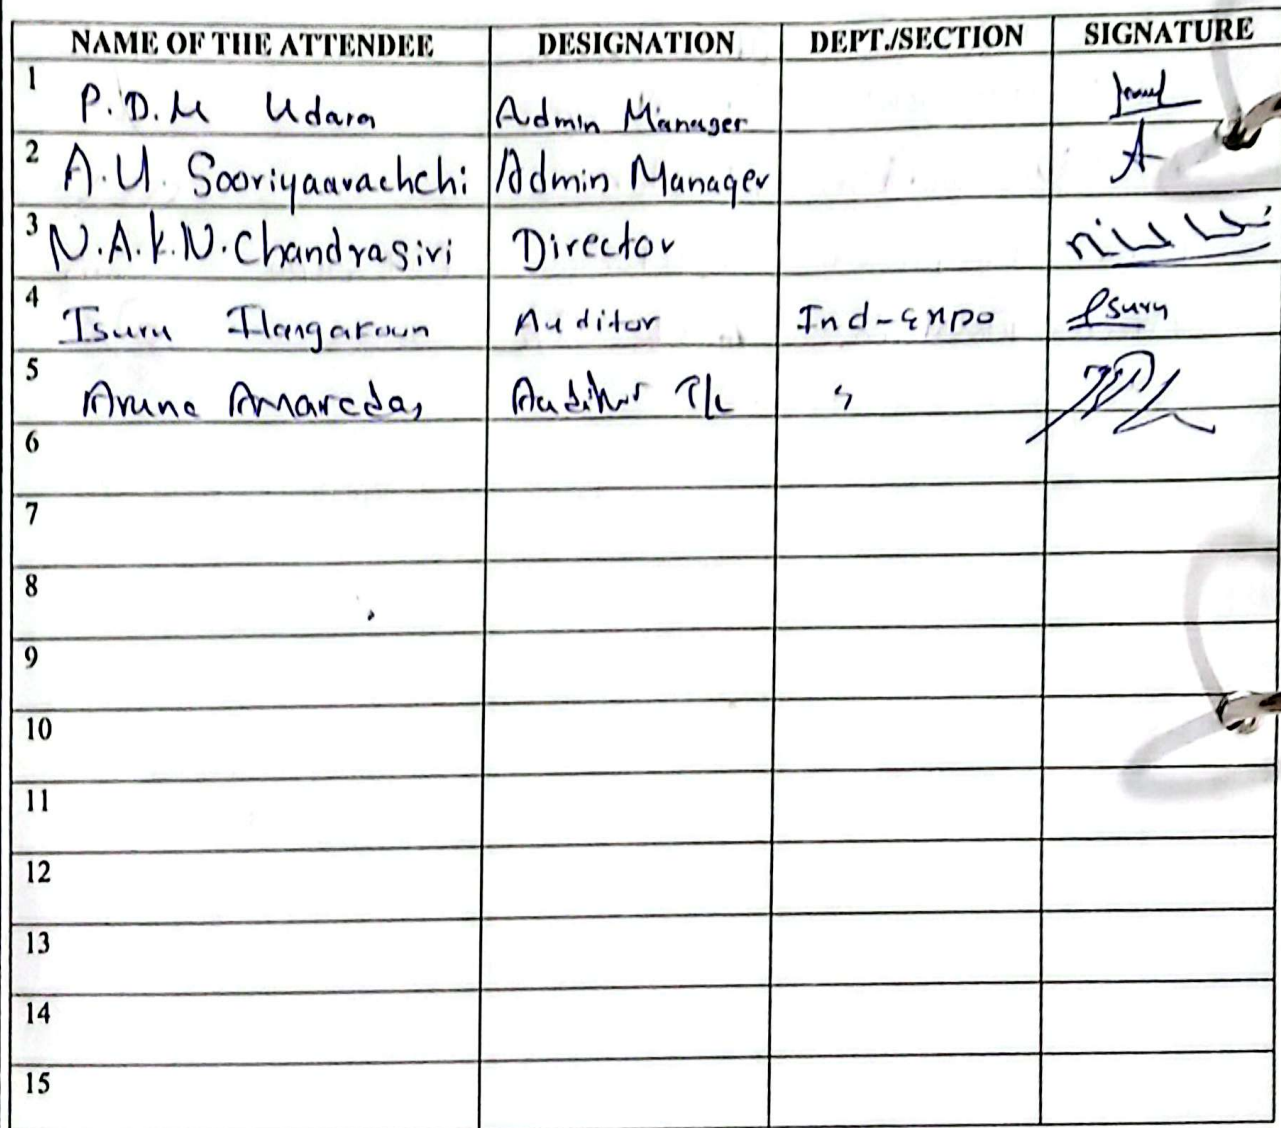 NAME OF THE ATTENDEE DESIGNATION DEPT./SECTION SIGNATURE
1 P.D.M Udara Admin Manager
2 A.U. Sooriyaarachchi Admin Manager A
3 N.A.K.N. Chandrasiri Director
4 Isuru Auditor Ind-expo Isuru
5 Aruna Amaradas
6
7
8
9
10
11
12
13
14
15